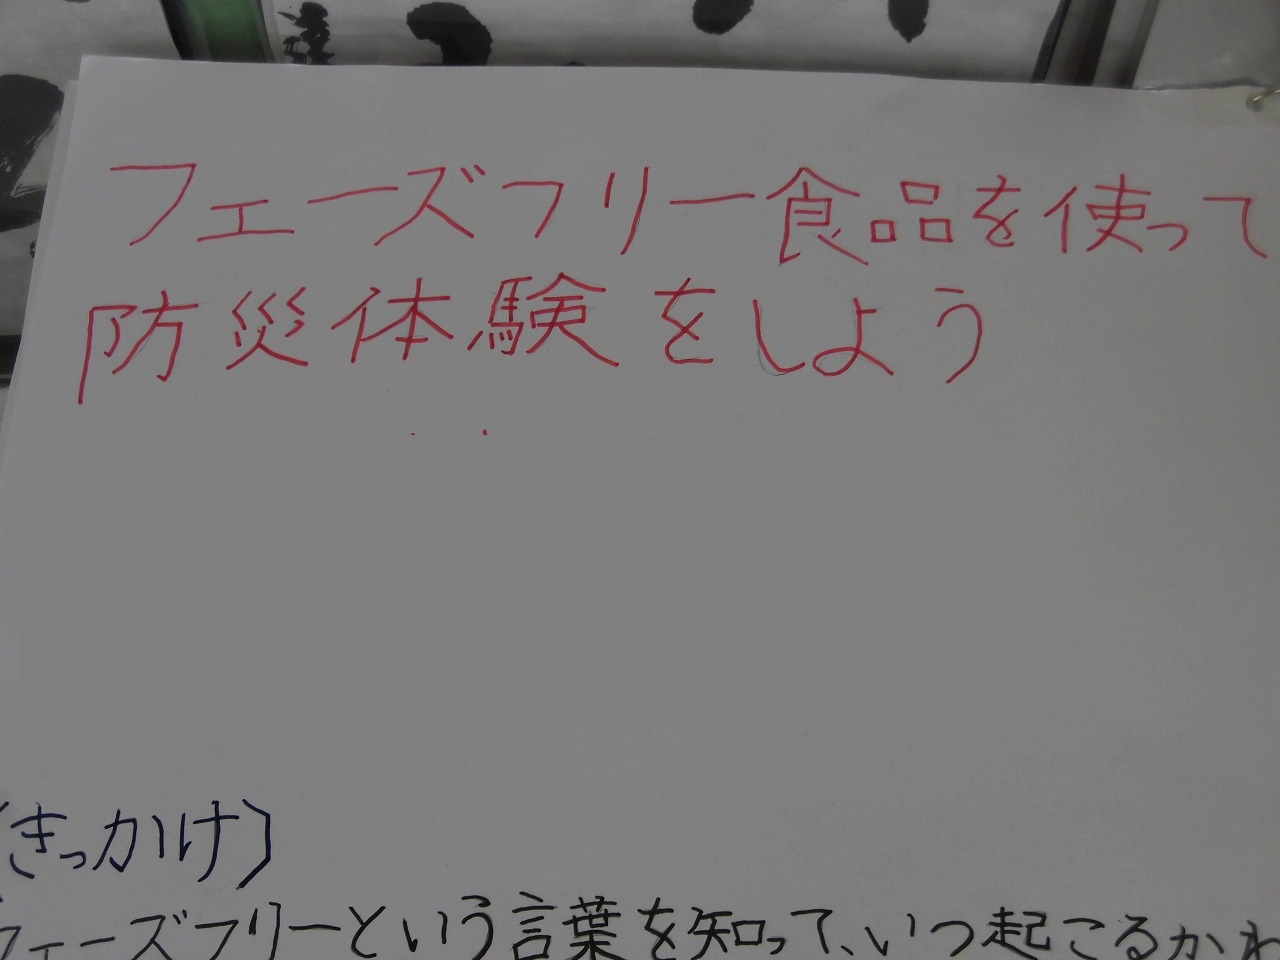 フェーズフリー食品を使って
防災体験をしよう
〔きっかけ〕
フェーズフリーという言葉を知って、いつ起こるか